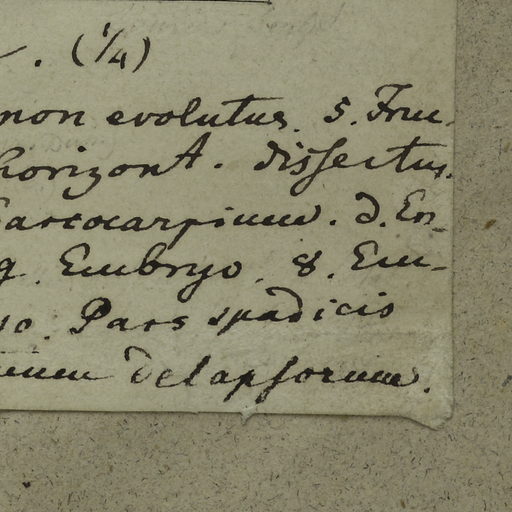 . (1/4)
non evolutus. 5. Fruc-
horizont. dissectus.
Sarcocarpium. d. En-
g. Embryo. 8. Em-
10. Pars spadicis
delapsorum.